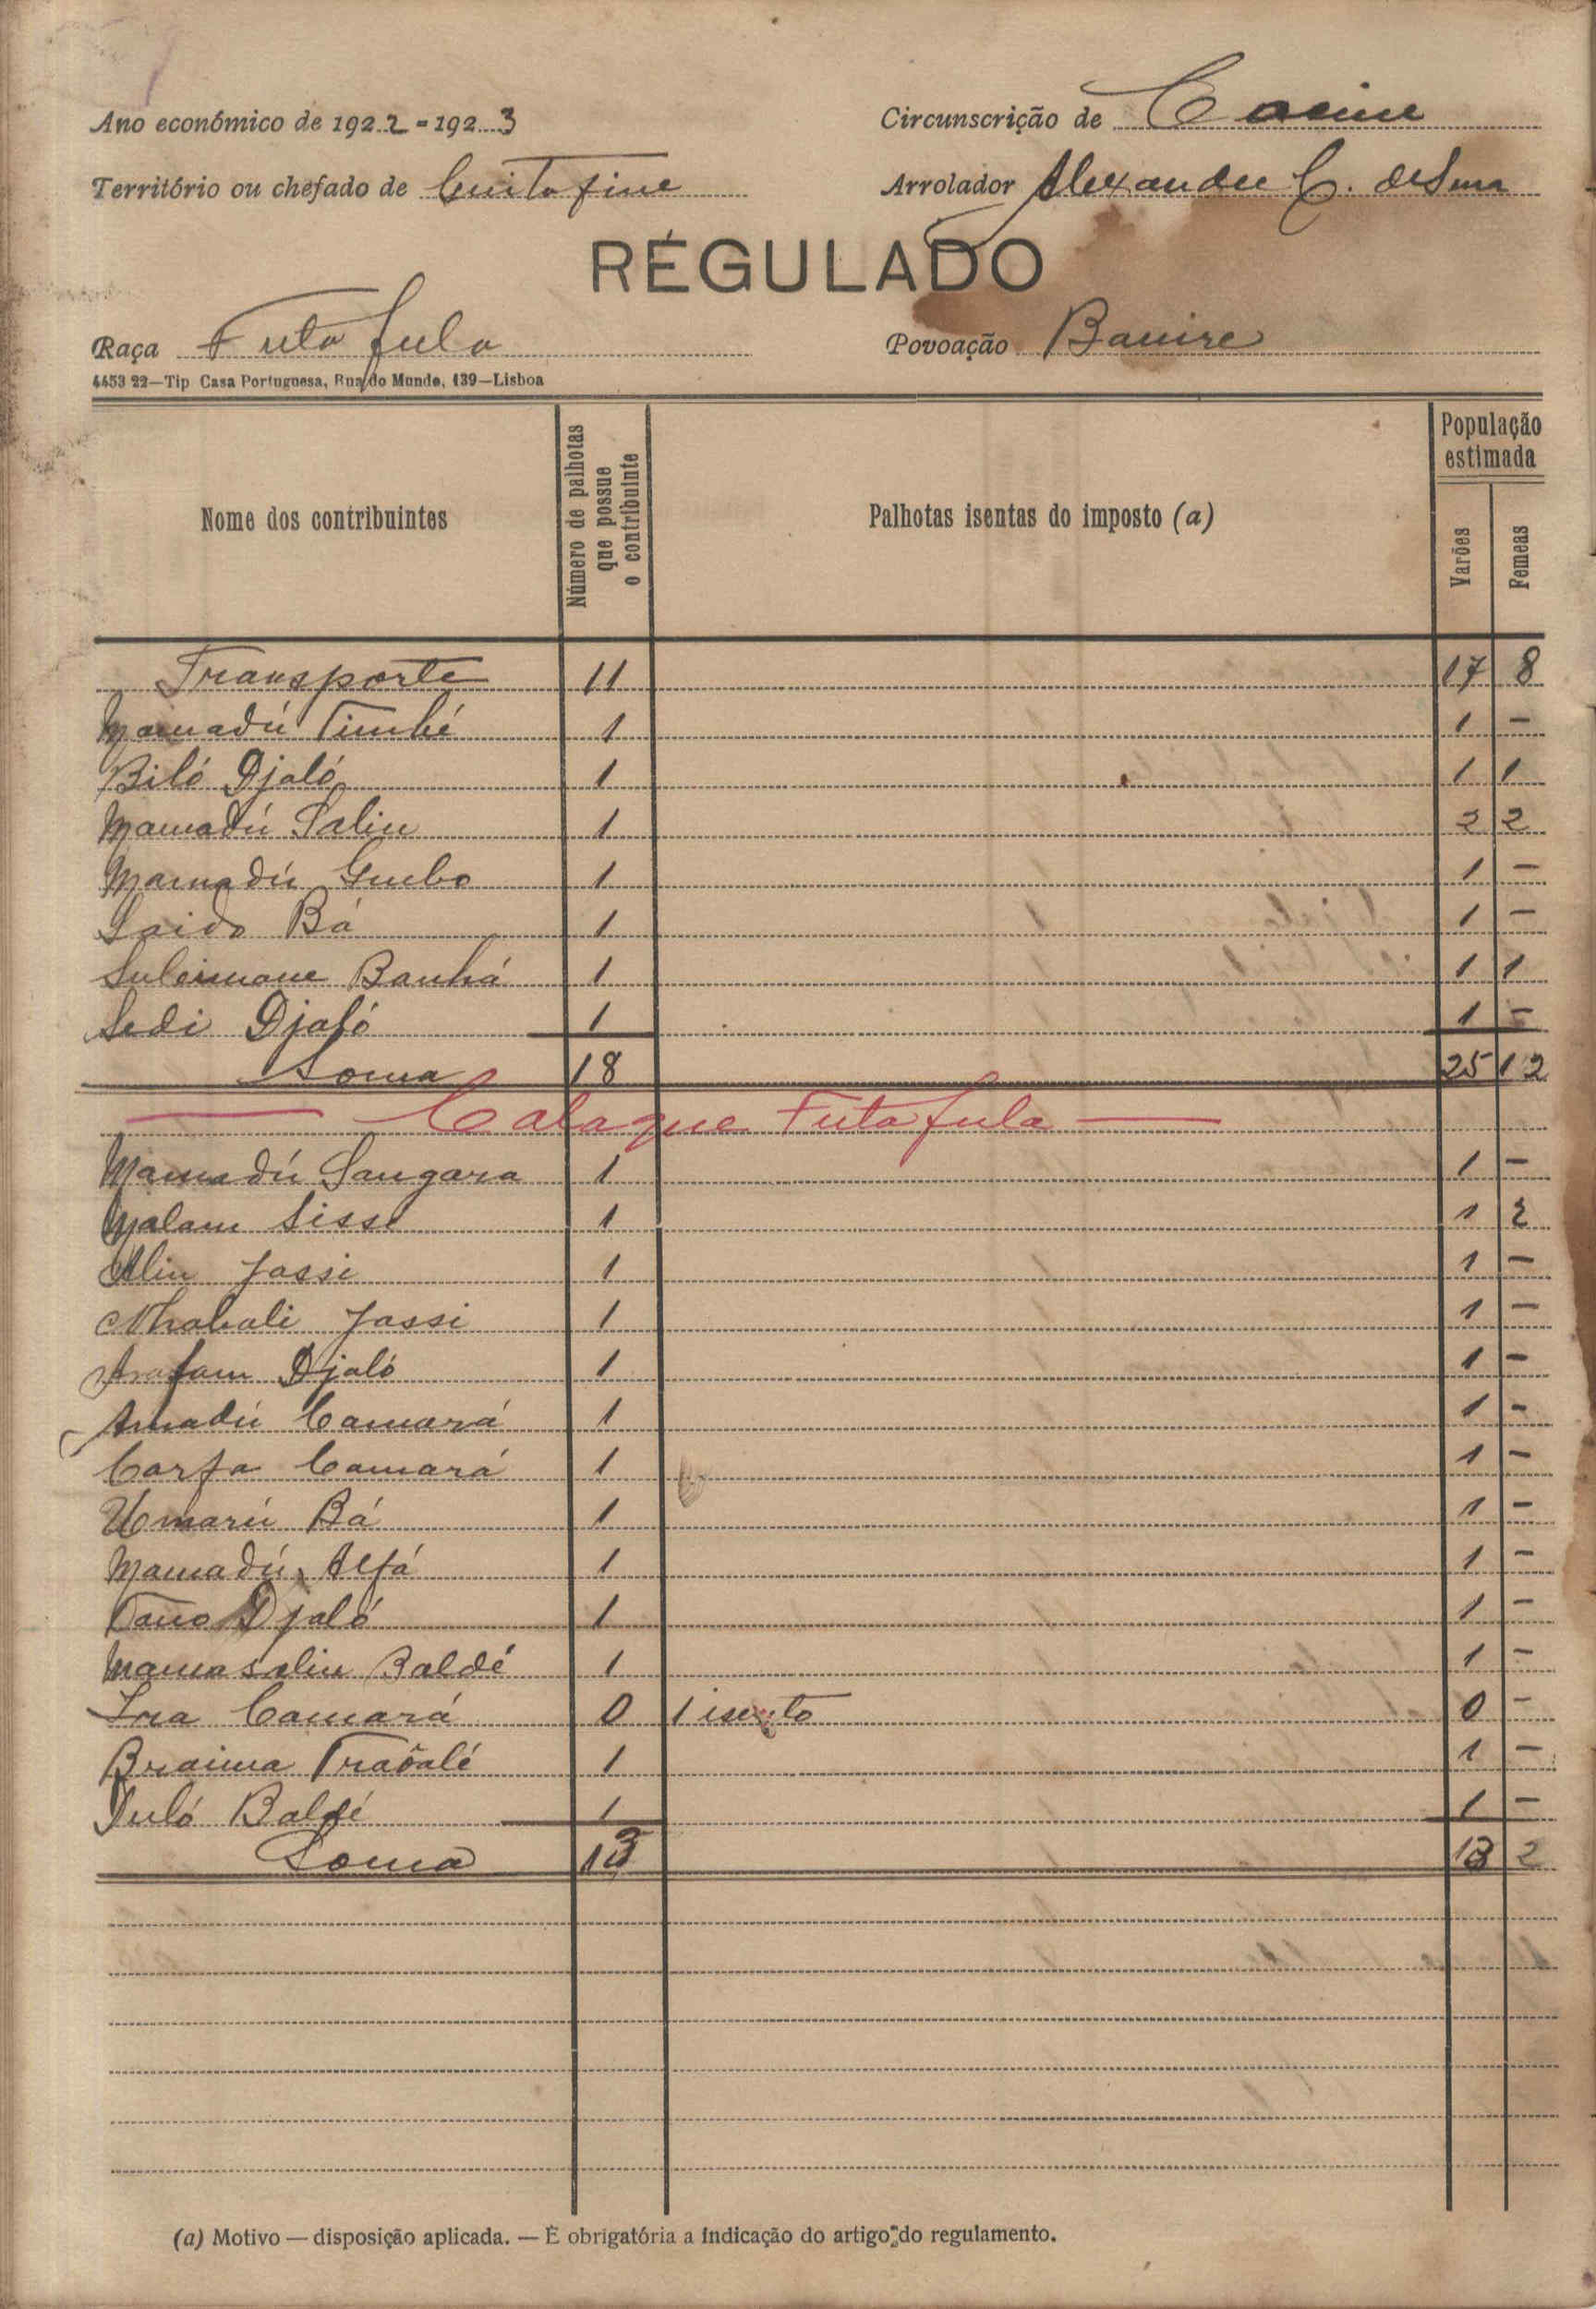 Ano económico de 1922-1923
Circunscrição de Cacine
Território ou chefado de Guitafine
Arrolador Alexandre C. de Sena
RÉGULADO
Raça Futa fula
Povoação Banire
4453 22—Tip Casa Portuguesa, Rua do Mundo, 139—Lisboa
Nome dos contribuintes
Número de palhotas que possue o contribuinte
Palhotas isentas do imposto (a)
População estimada
Varões
Femeas
Transporte 11 17 8
Mamadú Timbé 1 1 —
Biló Djaló 1 1 1
Mamadú Saliu 1 2 2
Mamadú Gumbo 1 1 —
Saido Bá 1 1 —
Suleimane Banhá 1 1 1
Sedi Djaló 1 1 —
Soma 18 25 12
— Calaque Futa fula —
Mamadú Sangara 1 1 —
Malam Sisse 1 1 2
Aliu Jassi 1 1 —
Mhabali Jassi 1 1 —
Arafam Djaló 1 1 —
Amadú Camará 1 1 —
Carfa Camará 1 1 —
Umarú Bá 1 1 —
Mamadú Alfá 1 1 —
Tano Djaló 1 1 —
Mamasaliu Baldé 1 1 —
Camará 0 1 isento 0 —
Braima Traoalé 1 1 —
Juló Baldé 1 1 —
Soma 13 13 2
(a) Motivo — disposição aplicada. — É obrigatória a indicação do artigo do regulamento.